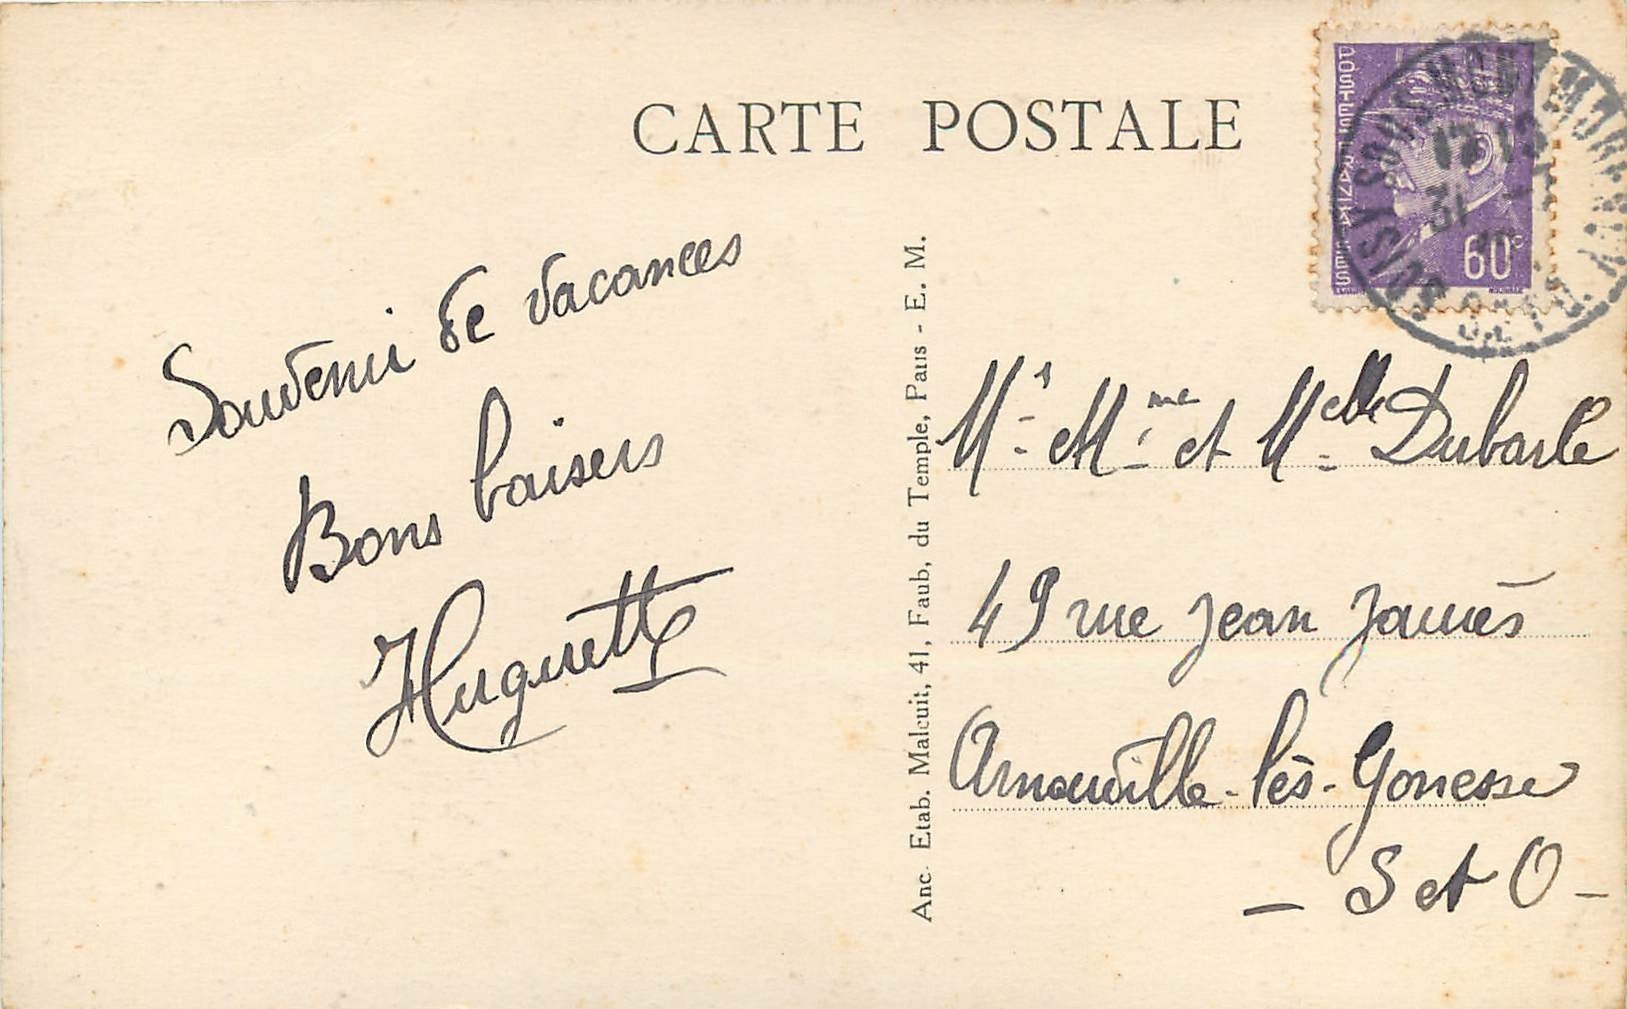 CARTE POSTALE
POSTES FRANÇAISES
60c
SOISY SOUS MONTMORENCY
17 15
31
Souvenir de vacances
Bons baisers
Huguette
Anc. Etab. Malcuit, 41, Faub. du Temple, Paris - E. M.
Mr. et Mme et Melle Dubarle
49 rue Jean Jaurès
Arnouville-lès-Gonesse
- S et O -